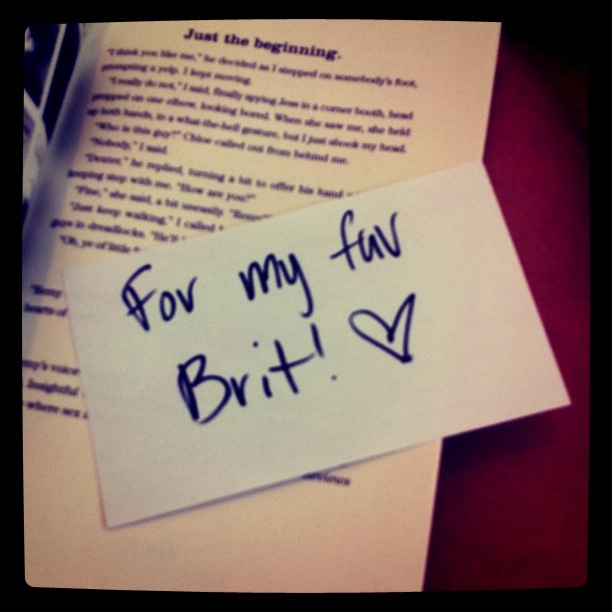 Just the beginning.
"I think you like me," he decided as I stepped on somebody's foot,
prompting a yelp. I kept moving.
"I really do not," I said, finally spying Jess in a corner booth, head
propped on one elbow, looking bored. When she saw me, she held
up both hands, in a what-the-hell gesture, but I just shook my head.
"Who is this guy?" Chloe called out from behind me.
"Nobody," I said.
"Dexter," he replied, turning a bit to offer his hand
keeping step with me. "How are you?"
"Fine," she said, a bit uneasily.
"Just keep walking," I called
guys in dreadlocks.
"Oh, ye of little
hearts of
voice
Insightful
where
For my fav
Brit! ♡